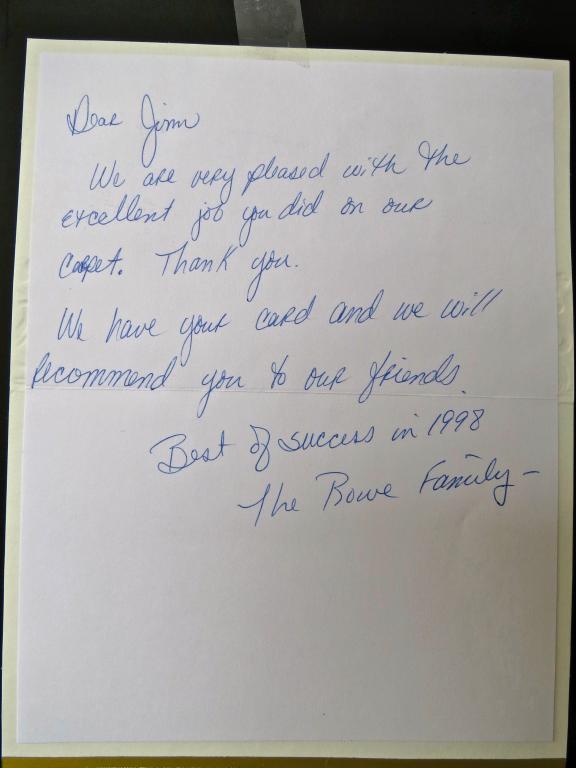 Dear Jim
We are very pleased with the
excellent job you did on our
carpet. Thank you.
We have your card and we will
recommend you to our friends.
Best of success in 1998
The Rowe Family –